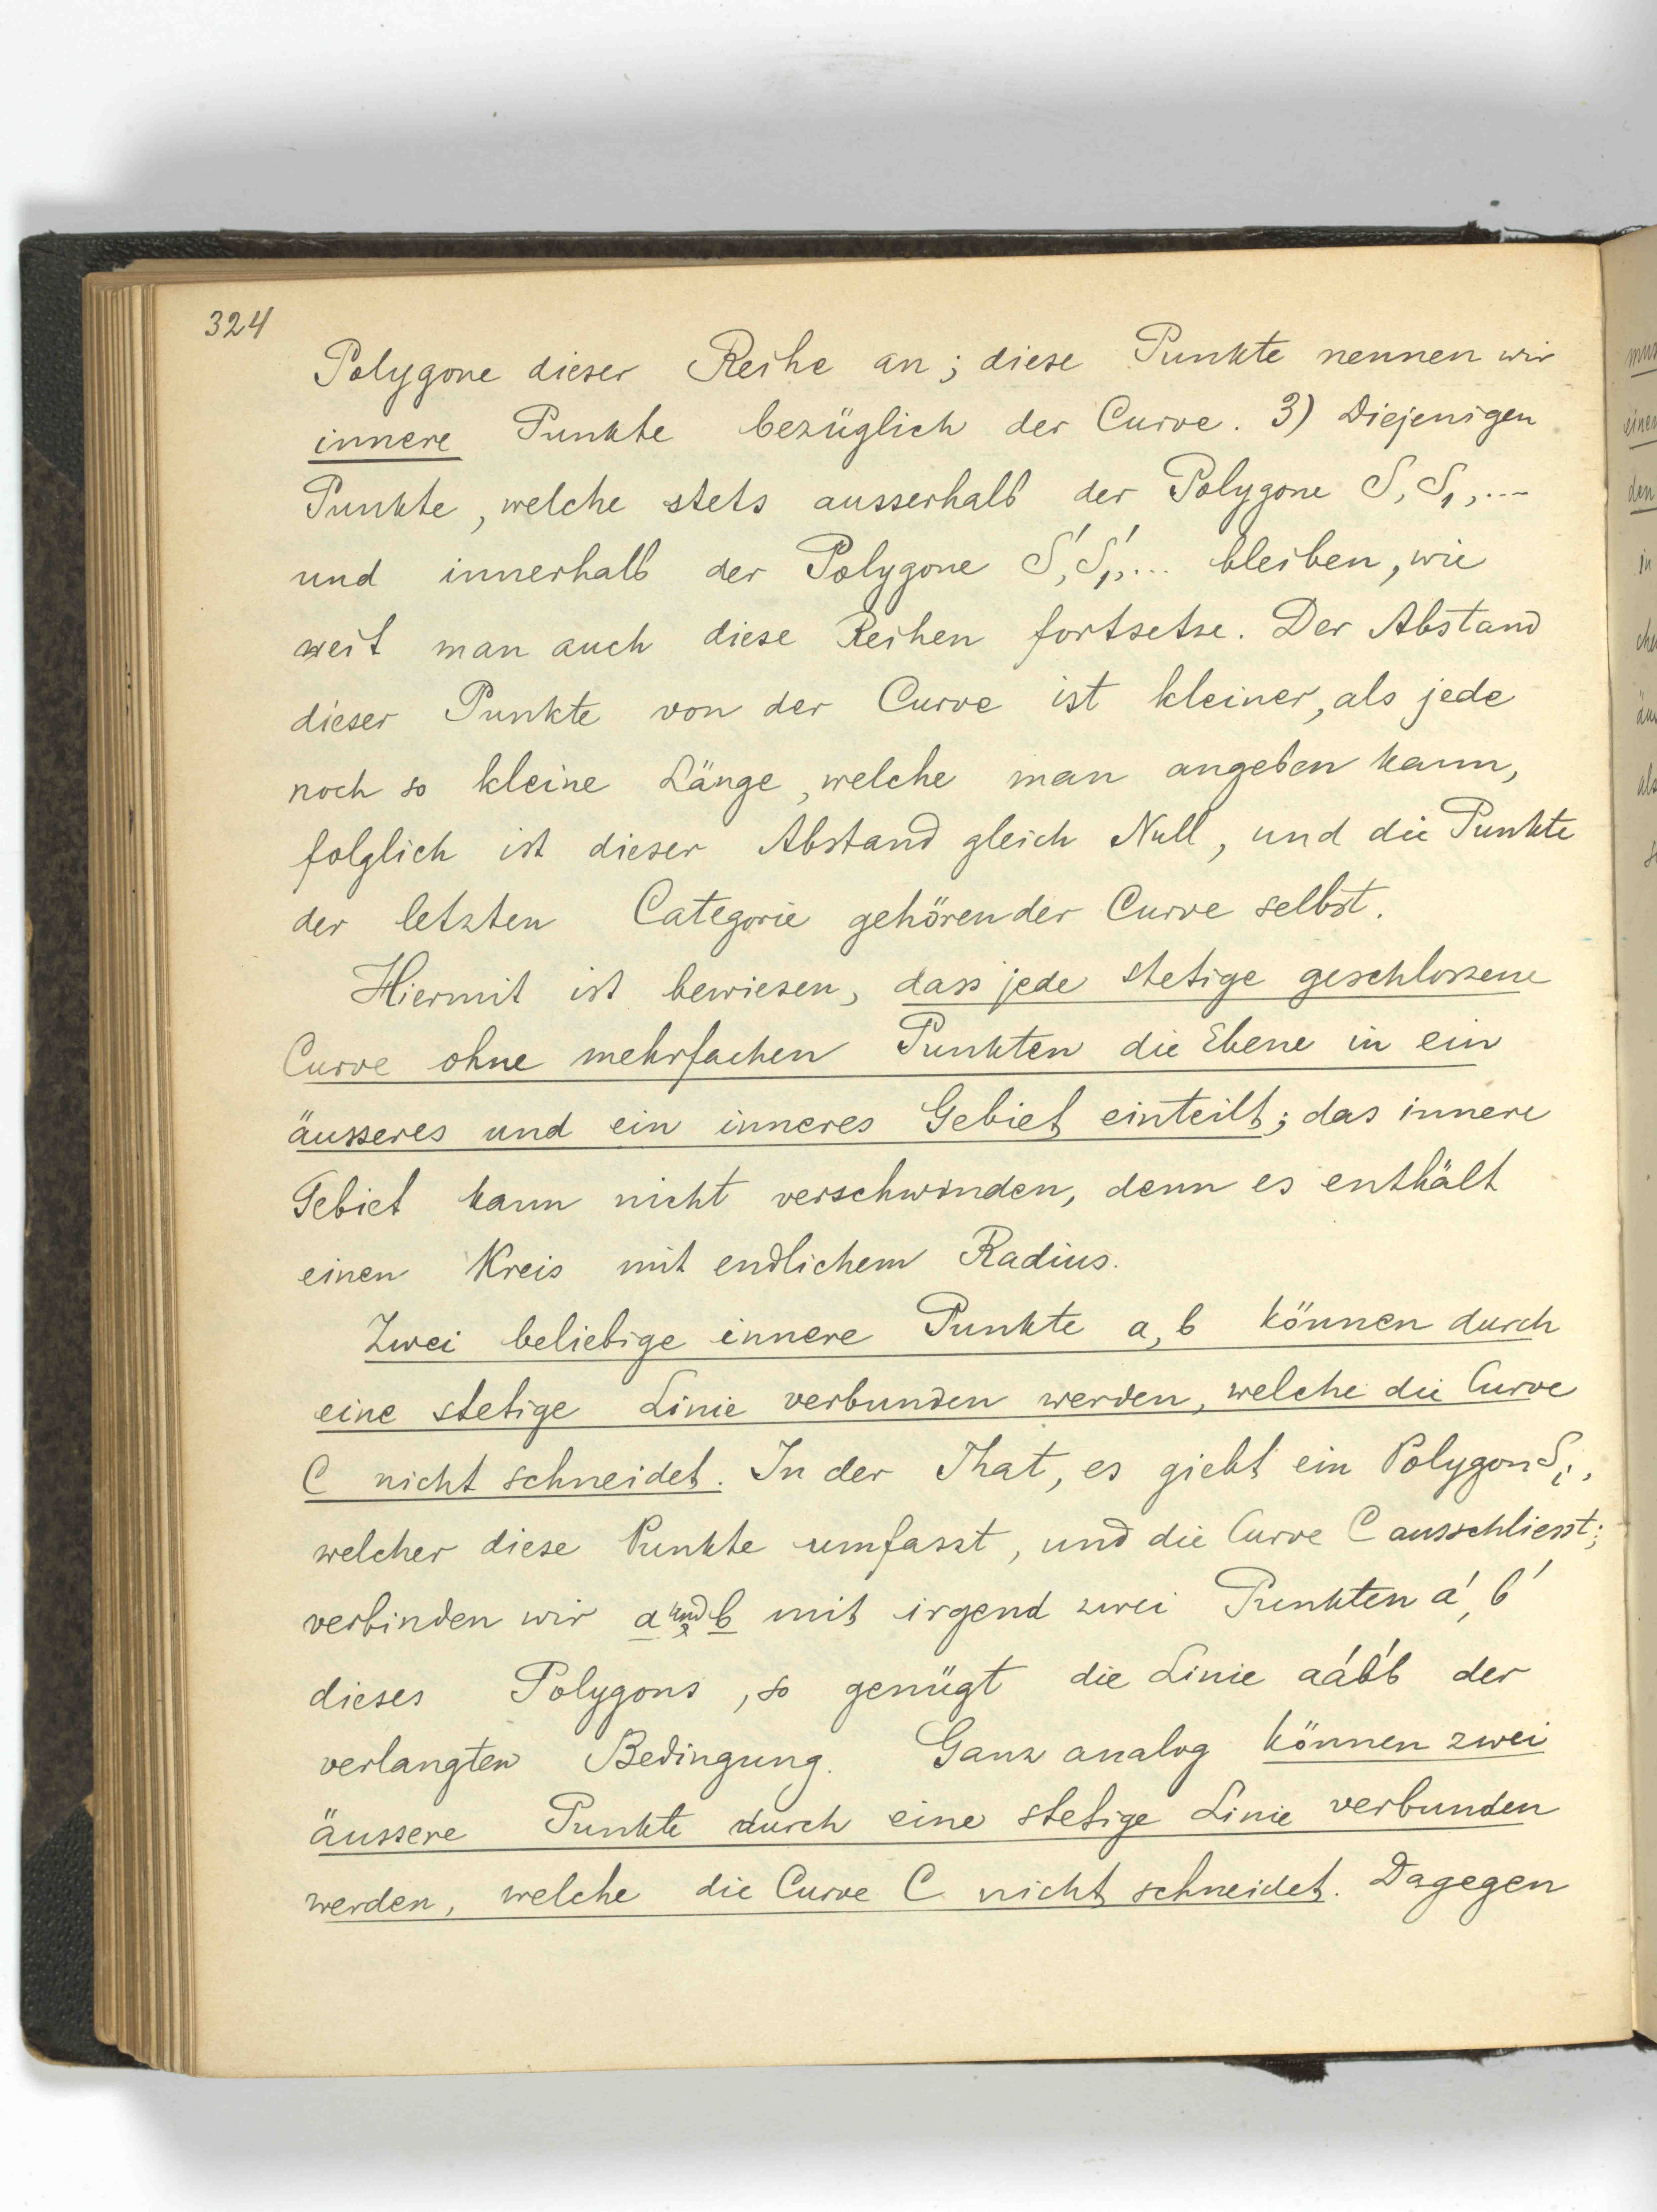 324
Polygone dieser Reihe an; diese Punkte nennen wir
innere Punkte bezüglich der Curve. 3) Diejenigen
Punkte, welche stets ausserhalb der Polygone S, S₁, ...
und innerhalb der Polygone S', S₁', ... bleiben, wie
weit man auch diese Reihen fortsetze. Der Abstand
dieser Punkte von der Curve ist kleiner, als jede
noch so kleine Länge, welche man angeben kann,
folglich ist dieser Abstand gleich Null, und die Punkte
der letzten Categorie gehören der Curve selbst.
Hiermit ist bewiesen, dass jede stetige geschlossene
Curve ohne mehrfachen Punkten die Ebene in ein
äusseres und ein inneres Gebiet einteilt; das innere
Gebiet kann nicht verschwinden, denn es enthält
einen Kreis mit endlichem Radius.
Zwei beliebige innere Punkte a, b können durch
eine stetige Linie verbunden werden, welche die Curve
C nicht schneidet. In der That, es giebt ein Polygon Sᵢ,
welcher diese Punkte umfasst, und die Curve C ausschliesst;
verbinden wir a und b mit irgend zwei Punkten a', b'
dieses Polygons, so genügt die Linie aa'b'b der
verlangten Bedingung. Ganz analog können zwei
äussere Punkte durch eine stetige Linie verbunden
werden, welche die Curve C nicht schneidet. Dagegen
einen
den
in
als